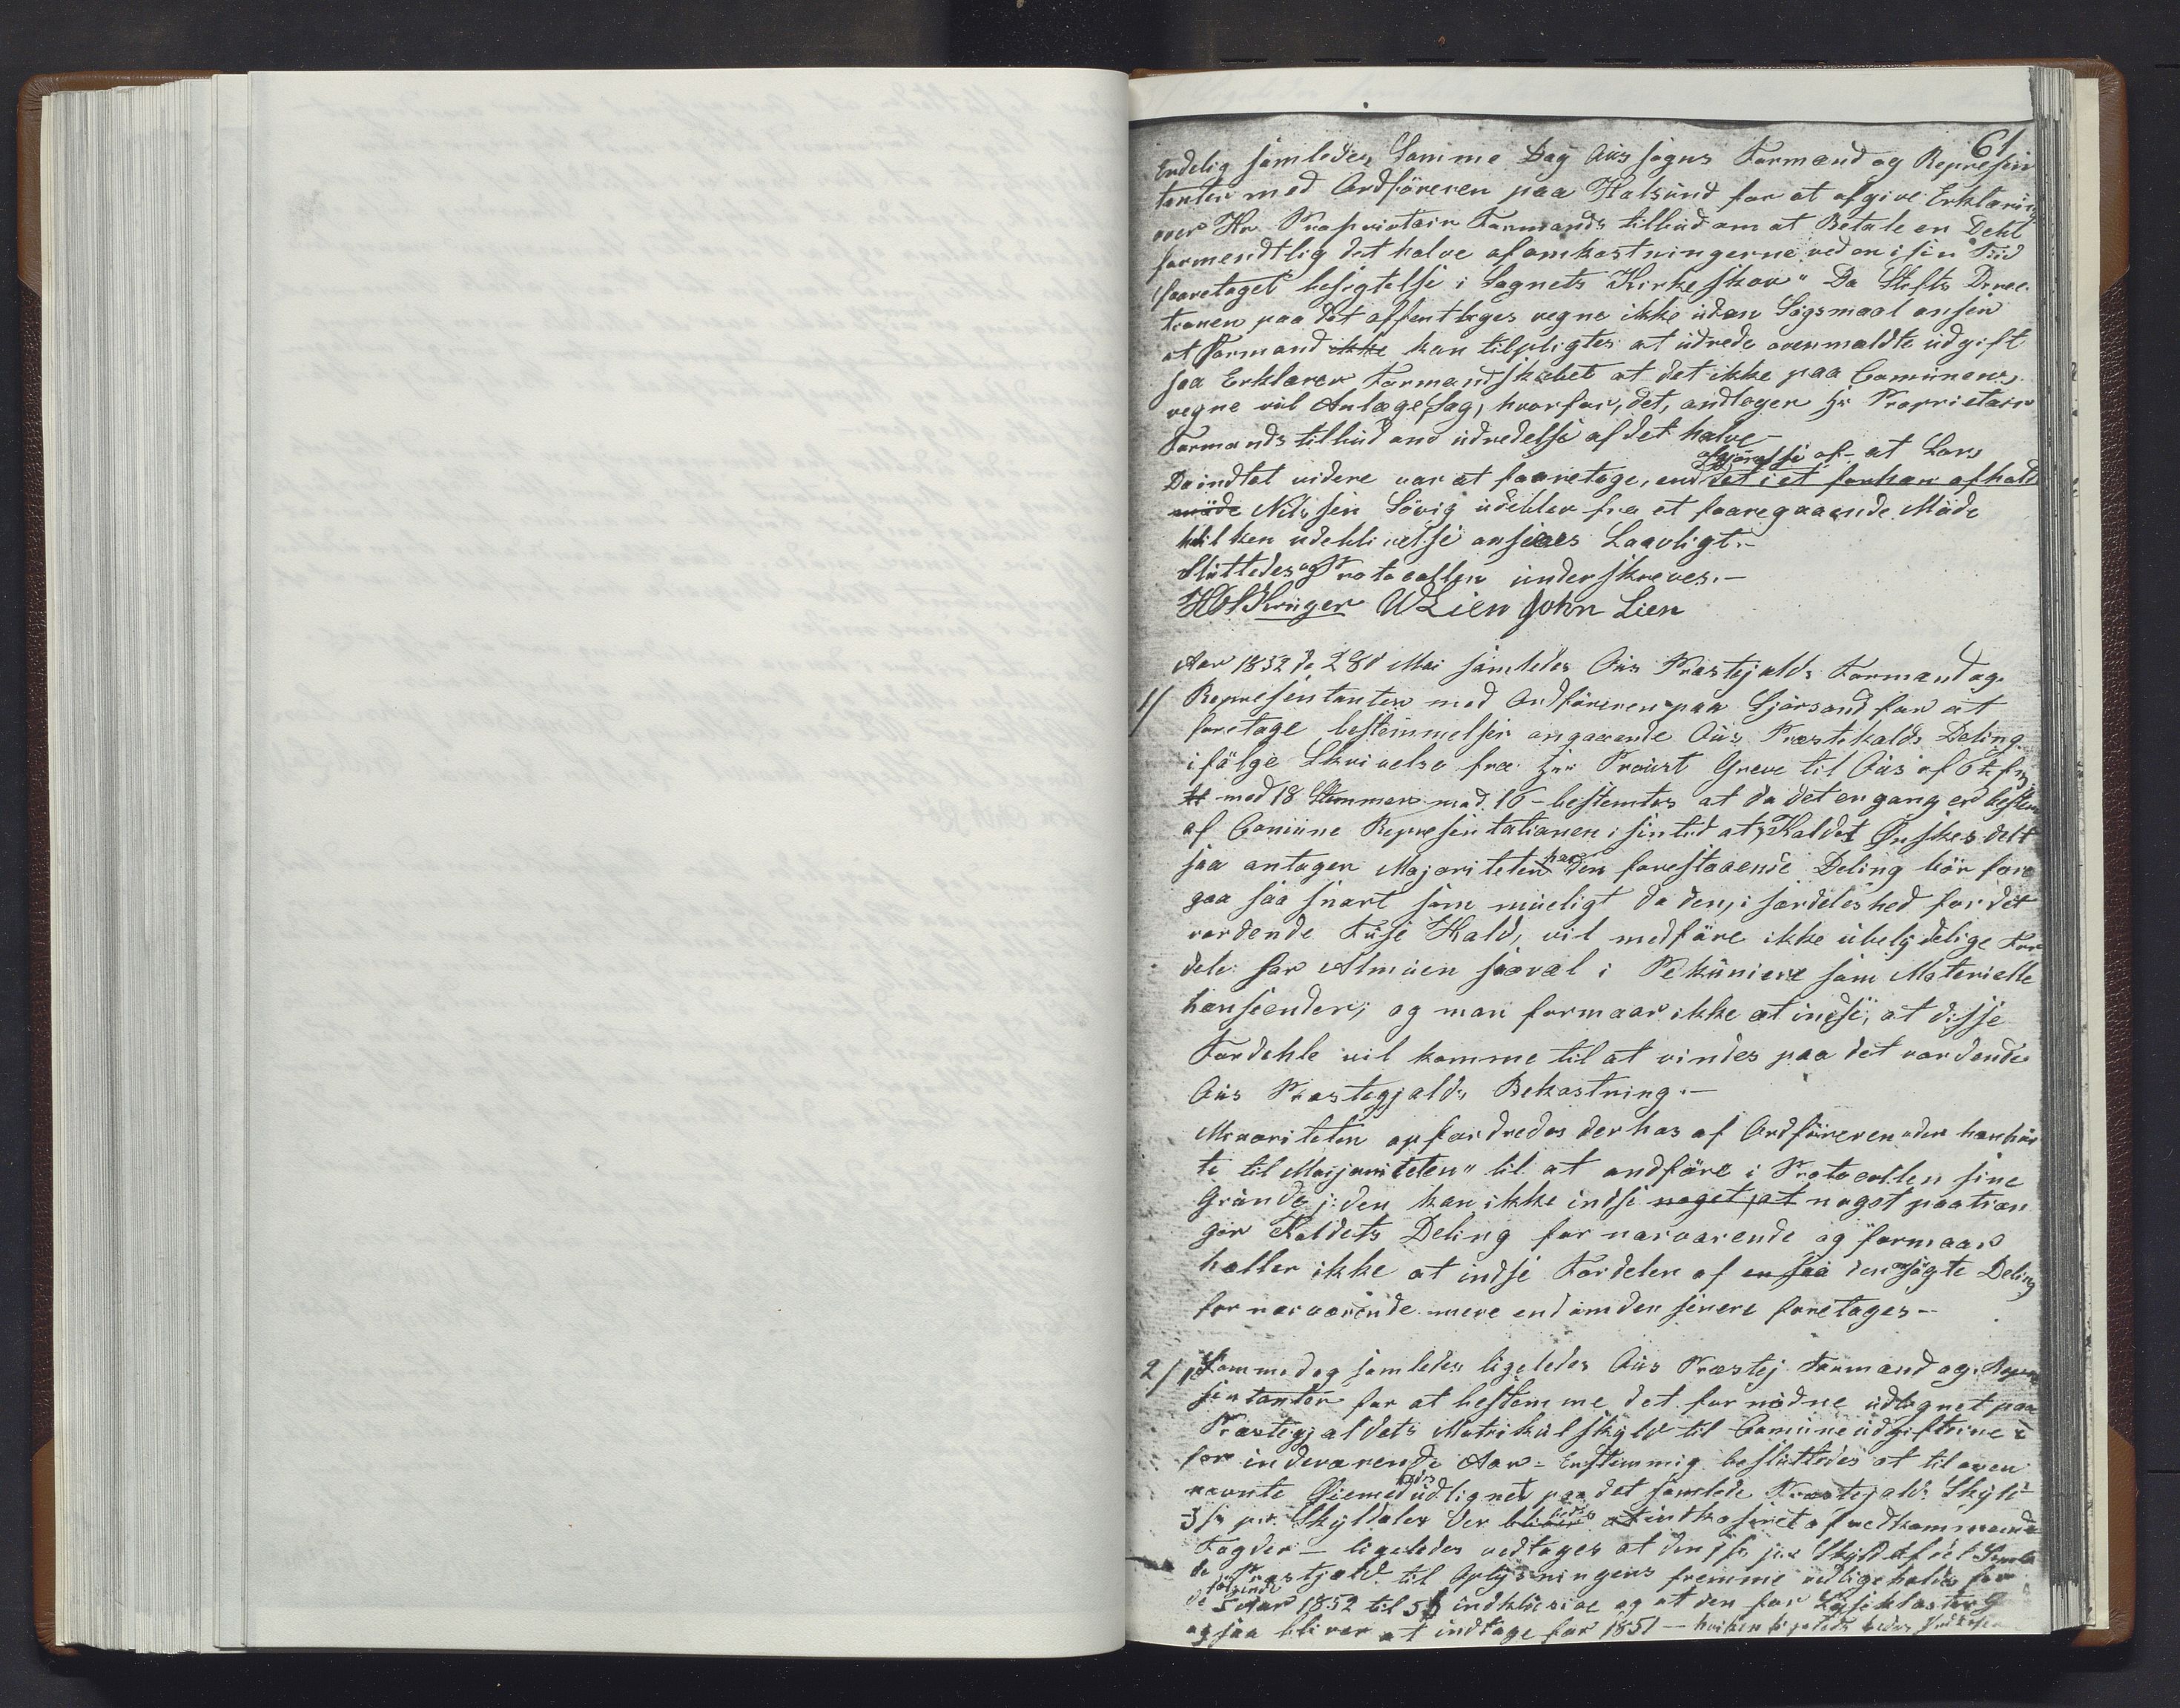 61
Endelig samledes Samme Dag Ous sogns Formænd og Repræsen
tanter med Ordföreren paa Halsund for at afgive Erklæring
over Hr. Proprietair Formands tilbud om at Betale en Dehl
formendtlig det halve af omkostningerne ved en i sin Tiid
foretaget besigtelse i Sognets Kirkeskov" Da Stifts Direc-
tionen paa det offentliges vegne ikke uden Sögsmaal ansen
at Formand ikke kan tilpligtes at udrede ovenmældte udgift
saa Erklærer Formandskabet at det ikke paa Comünens
vegne vil Anlæge Sag, hvorfor, det, andtager Hr Proprietair
Formands tilbud om udredelse af det halve -
Da indtet videre var at foeretage, end afgjörelse af - at Lars
det i et forhen afhold
möde Nilssen Sövig udeblev fra et foeregaaende Möde
hvilken udeblivelse ansees Laavligt. -
Sluttedes og Protocollen underskreves. -
HOKrüger WLien John Lien
Aar 1852 de 28d Mai samledes Ous Præstejalds Formænd og
1/ Repræsentanter med Ordföreren paa Gjörsand for at
foretage bestemmelser angaaende Ous Prestekalds Deling
ifölge Skrivelse fra Hr. Proust Greve til Ous af 6te
med 18 Stemmer mod 16 - bestemtes at da det engang er bestem
af Comüne Repræsentationen i sin tid at Kaldet Önskes delt
saa antager Majoriteten har den forestaaende Deling bör fore
gaa saa snart som mueligt da den, i særdeleshed for det
vordende Fuse Kald, vil medföre ikke ubetydelige For
dele for Almuen saavæl i Pekuniere som Materielle
henseender; og man formaar ikke at indse, at disse
Fordehle vil komme til at vindes paa det vordende
Ous Præstegjælds Bekostning. -
Minoriteten opfordredes derhos af Ordföreren uden han hör
te til Majoriteten" til at andföre i Protocollen sine
Grunde; den kan ikke indse noget, at noget paatræn
ger Kaldets Deling for nærværende og formaar
heller ikke at indse Fordelen af en saa den ansögte Deling
for nærværende mere end om den senere foretages -
2/ Samme dag samledes ligeledes Ous Præstej Formænd og Repræ
sentanter for at bestemme det fornödne udlignet paa
Præstegjældets Matrikulskyld til Comüneudgifterne
for indeværende Aar - Enstemmig besluttedes at til oven
nævnte Öiemed udlignet paa det samlede Præstejalds Skyld
3 s pr. Skylddaler der bliver at indkasseret af vedkommende
Fogder - ligeledes vedtages at den s pr Skyld af det Samle
de Præstjæld til Oplysningens fremme vedligeholdes for
de fölgende 5 Aar 1852 til 56 indklusive og at den for Lysekloster
ogsaa bliver at indtage for 1851 -